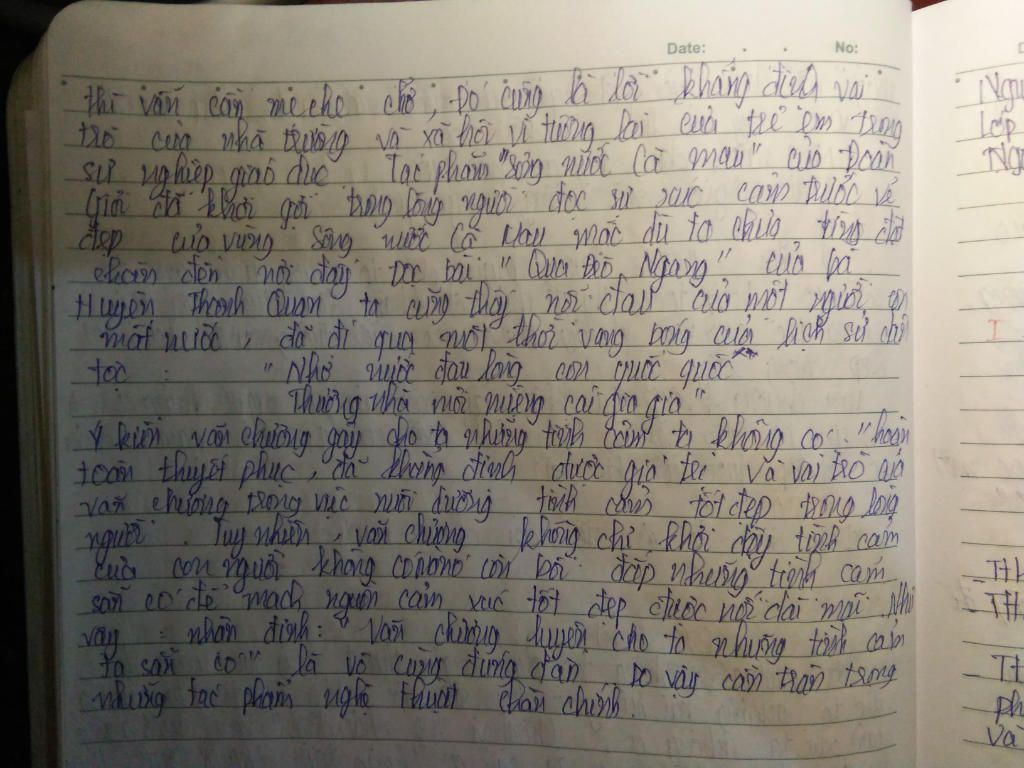 Date: . . No:
thì vẫn cần mẹ che chở, Đó cũng là lời khẳng định vai
trò của nhà trường và xã hội vì tương lai của trẻ em trong
sự nghiệp giáo dục Tác phẩm "sông nước Cà mau" của Đoàn
Giỏi đã khơi gợi trong lòng người đọc sự xúc cảm trước vẻ
đẹp của vùng sông nước Cà Mau mặc dù ta chưa từng đặt
chân đến nơi đây Đọc bài "Qua Đèo Ngang" của bà
Huyện Thanh Quan ta cũng thấy nỗi đau của một người con
mất nước, đã đi qua một thời vang bóng của lịch sử dân
tộc : "Nhớ nước đau lòng con quốc quốc
Thương nhà mỏi miệng cái gia gia"
Ý kiến văn chương gây cho ta những tình cảm ta không có "hoàn
toàn thuyết phục, đã khẳng định được giá trị và vai trò của
văn chương trong việc nuôi dưỡng tình cảm tốt đẹp trong lòng
người. Tuy nhiên, văn chương không chỉ khơi dậy tình cảm
của con người không có nó còn bồi đắp những tình cảm
sẵn có để mạch nguồn cảm xúc tốt đẹp được nối dài mãi Như
vậy : nhận định: "Văn chương luyện cho ta những tình cảm
ta sẵn có" là vô cùng đúng đắn Do vậy cần trân trọng
những tác phẩm nghệ thuật chân chính.
Ngu
Lớp
Ng
I
TH
TH
TH
ph
Và